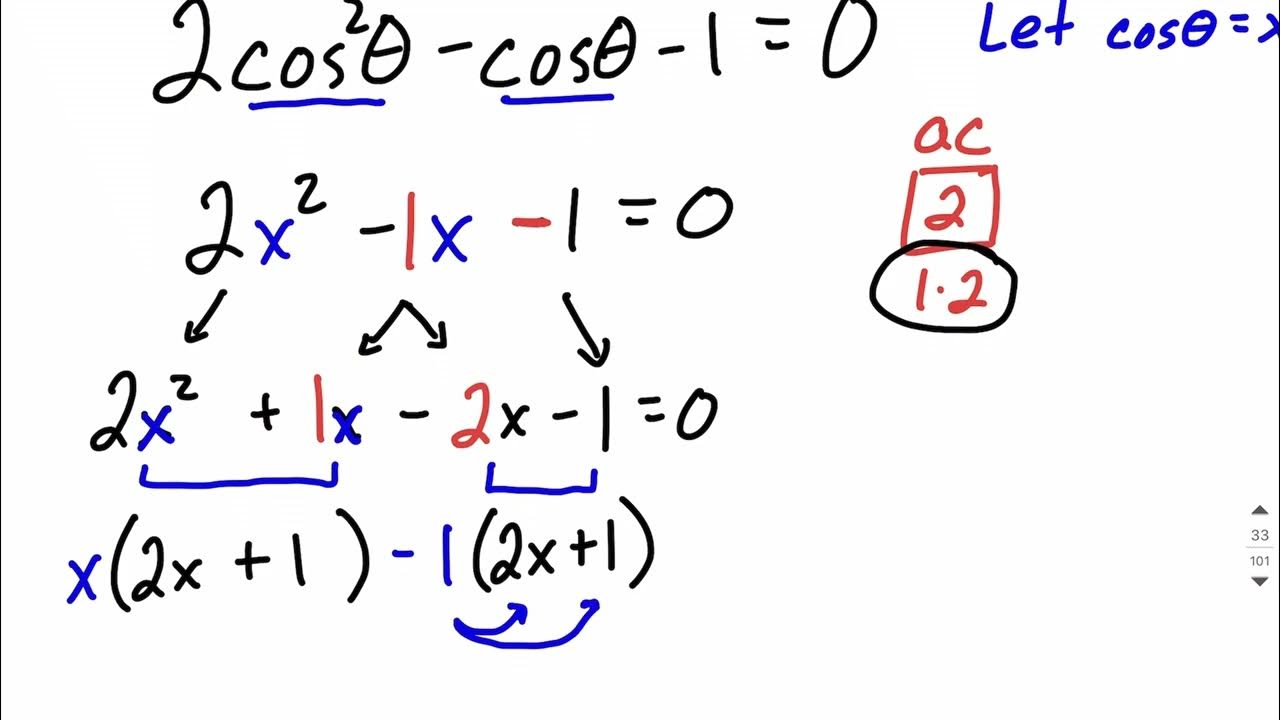 2cos²θ - cosθ - 1 = 0
Let cosθ = x
ac
2
1·2
2x² - 1x - 1 = 0
2x² + 1x - 2x - 1 = 0
x(2x + 1) - 1(2x + 1)
33
101